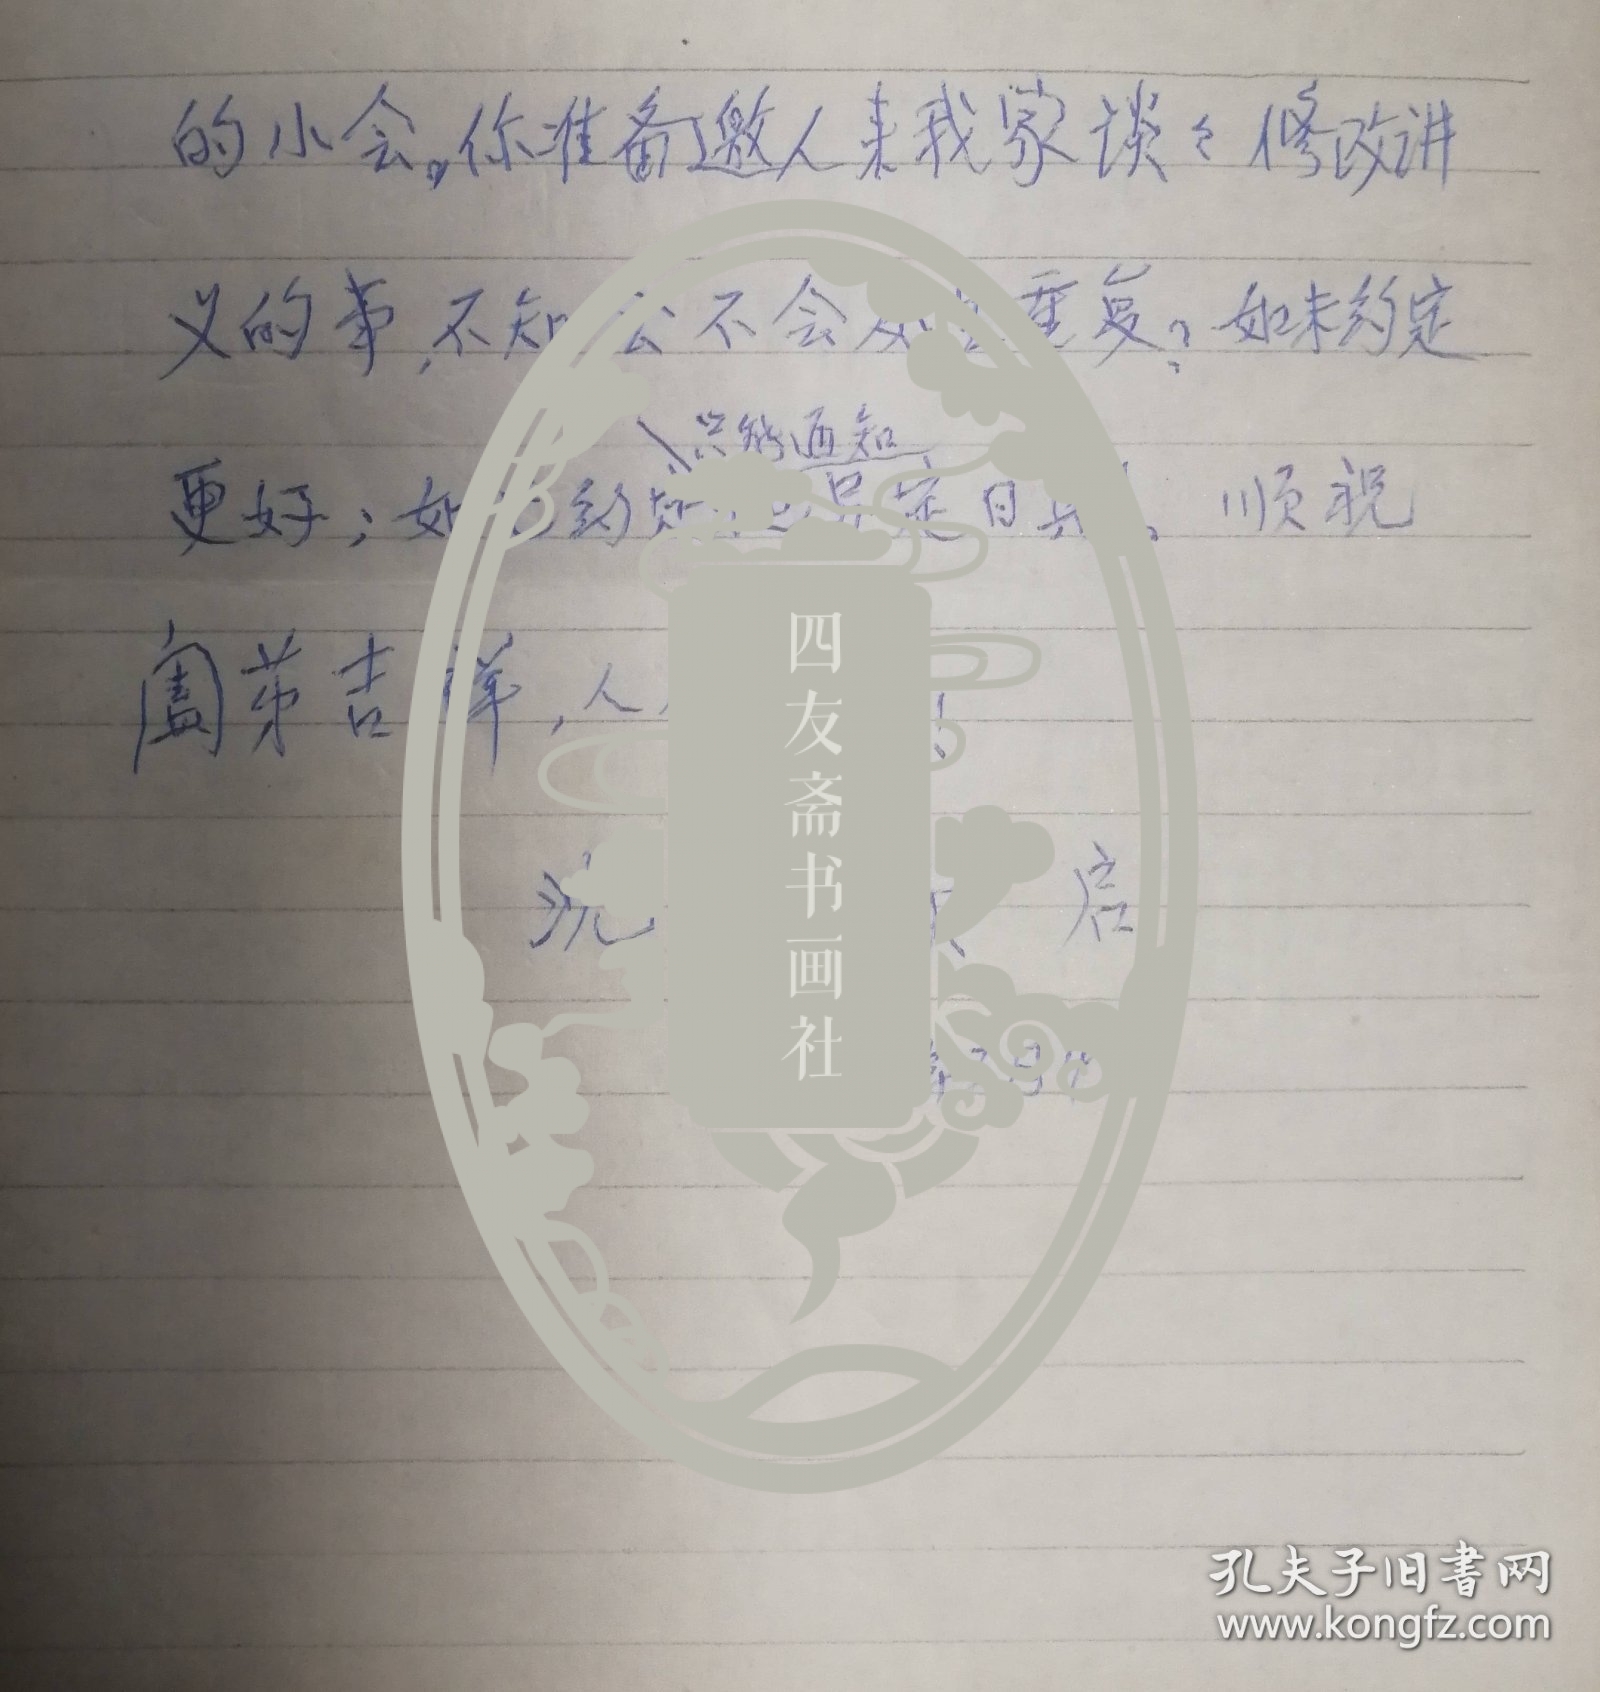 的小会。你准备邀人来我家谈々修改讲
义的事，不知会不会 重复？如未约定
只能通知
更好；如已约 另定日期。顺祝
阖第吉祥，人
沈 启
年 月
四友斋书画社
孔夫子旧书网
www.kongfz.com